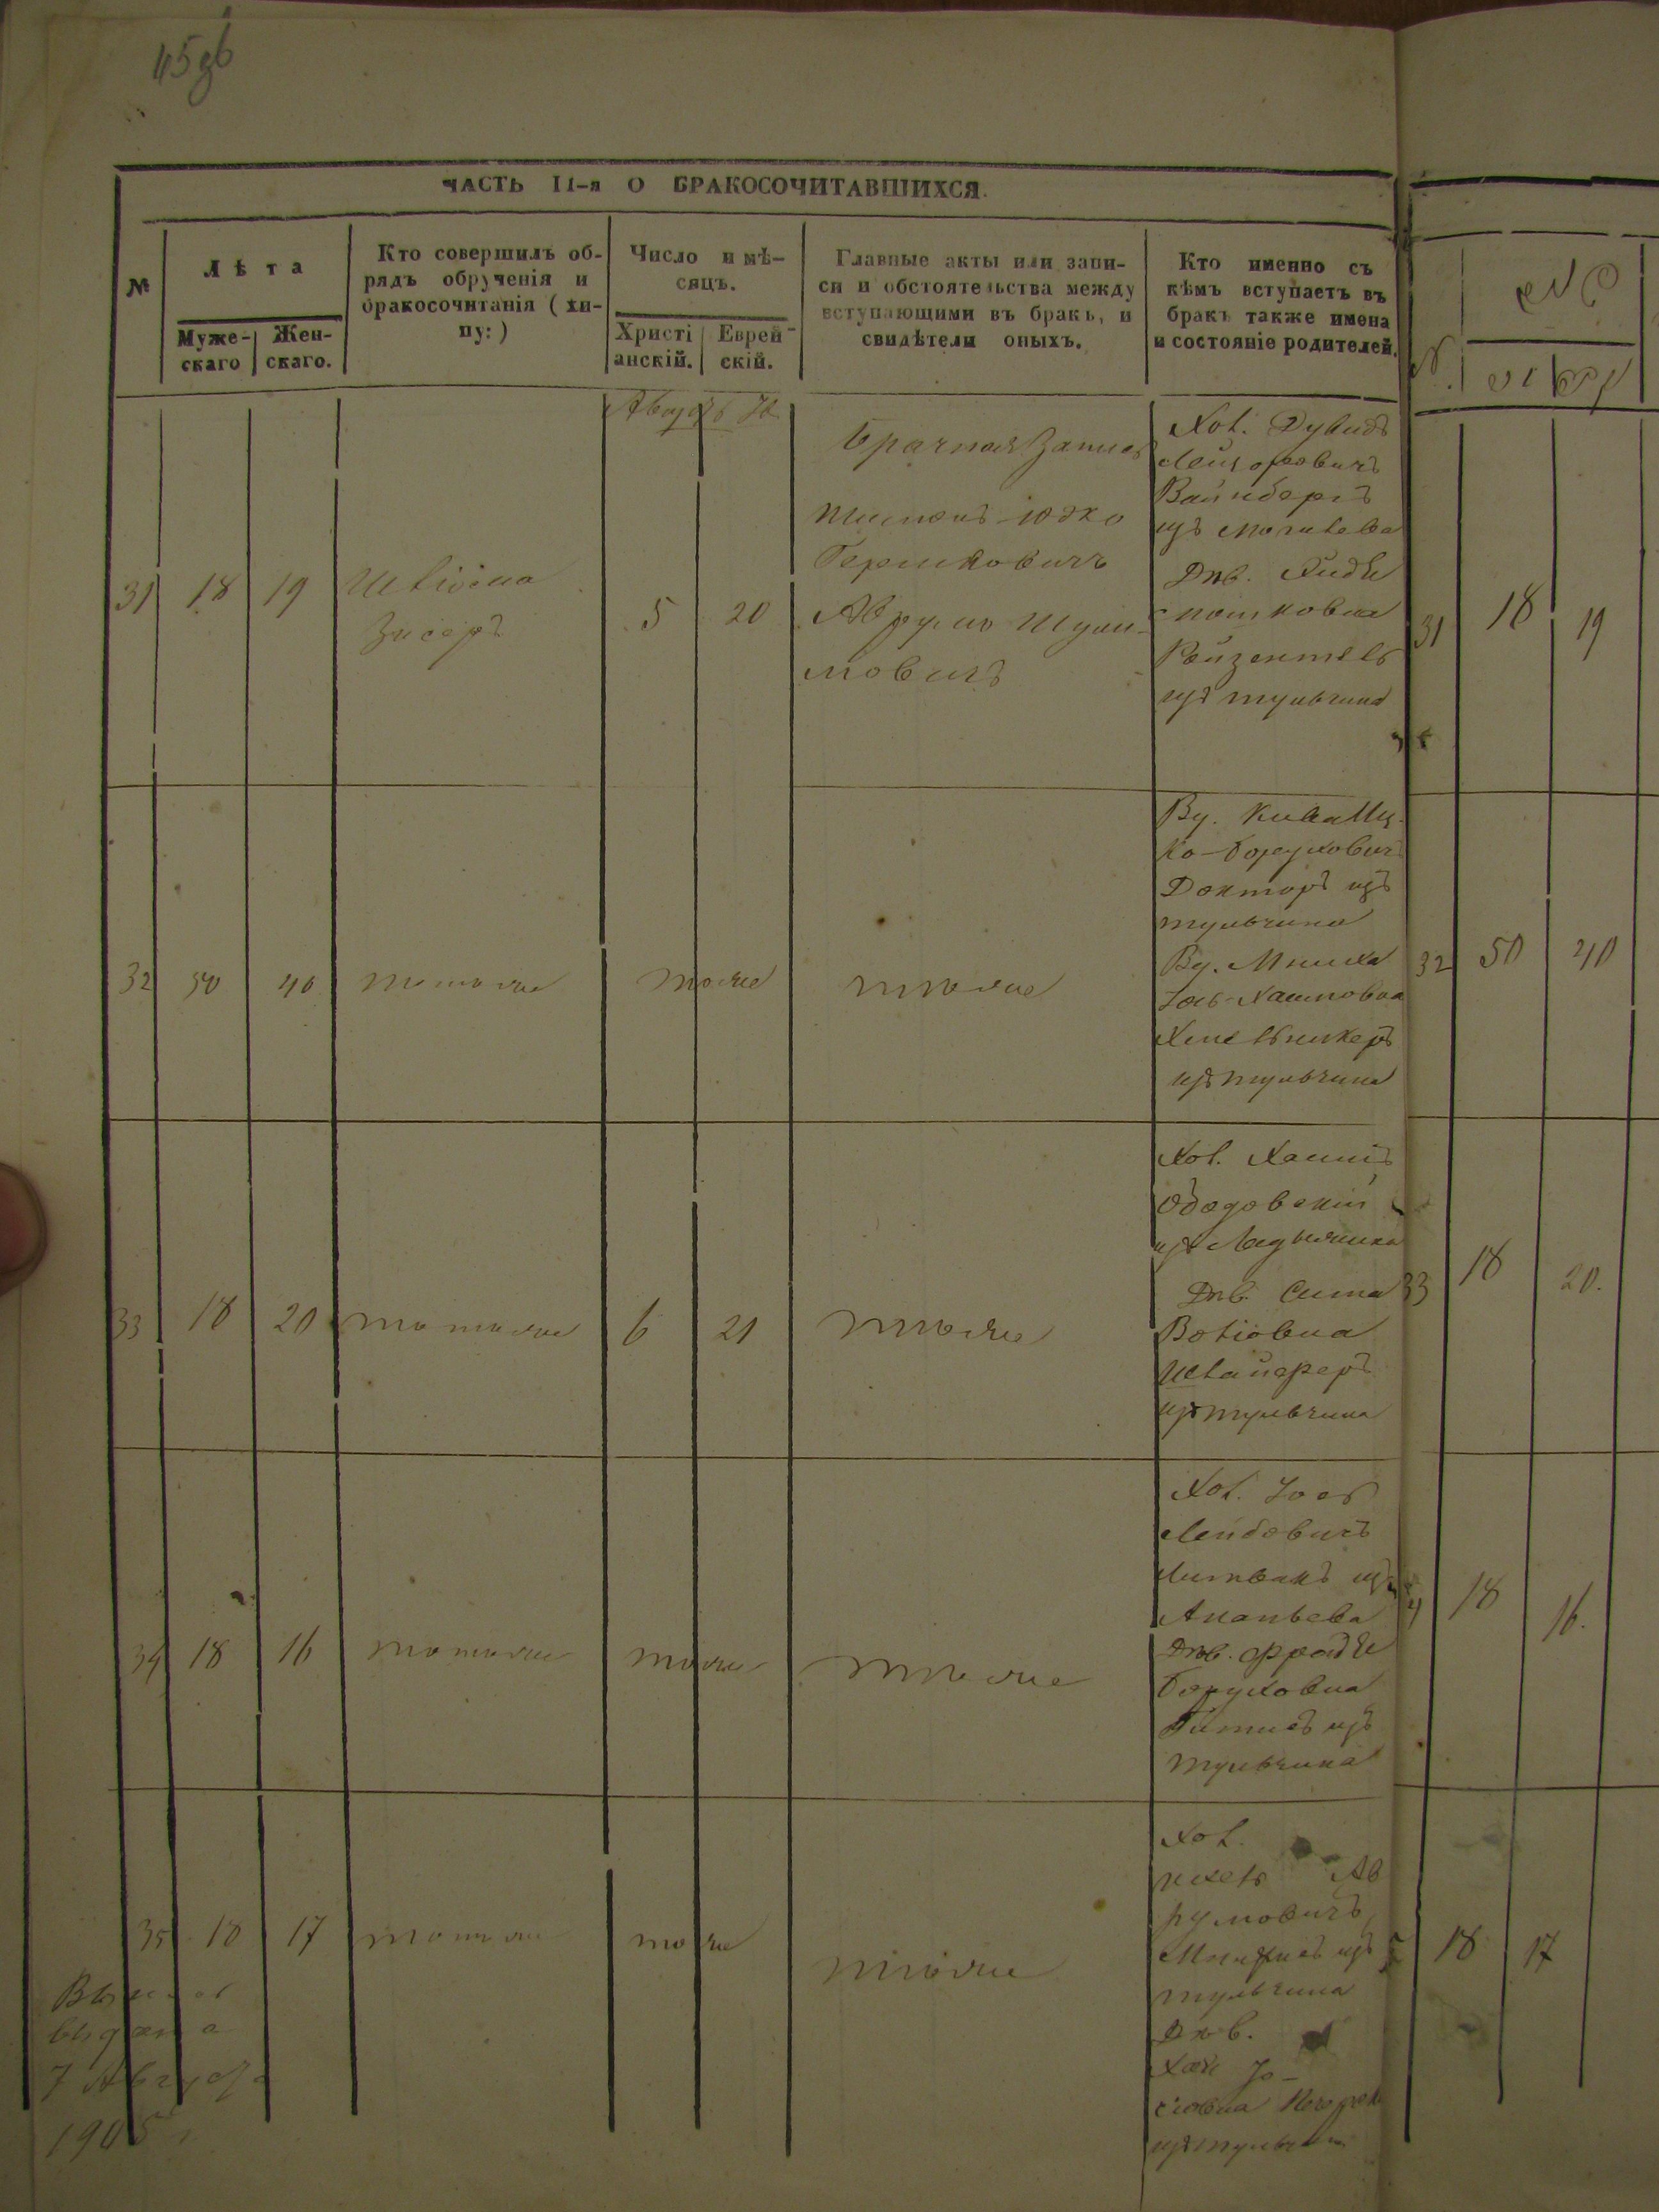 45об
ЧАСТЬ II-я О БРАКОСОЧИТАВШИХСЯ.
№
Лѣта
Муже-
скаго
Жен-
скаго.
Кто совершилъ об-
рядъ обрученія и
бракосочитанія (хи-
пу:)
Число и мѣ-
сяцъ.
Христі
анскій.
Еврей-
скій.
Главные акты или запи-
си и обстоятельства между
вступающими въ бракъ, и
свидѣтели оныхъ.
Кто именно съ
кѣмъ вступаетъ въ
бракъ также имена
и состояніе родителей.
Августъ
31
18
19
Зисеръ
5
20
Брачная Запись
Юдко
Гершковичъ
Аврумъ Шули-
мовичъ
Хол. Дувидъ
Лейзоровичъ
Вайнбергъ
изъ Могилева
Дѣв.
Ройзентель
изъ тульчина
32
50
40
тотже
тоже
тоже
Ву. Кива Иц-
ко-Боруховичъ
Докторъ изъ
тульчина
Ву. Мниха
Хаимовна
Хмельникеръ
изъ тульчина
33
18
20
тотже
6
21
тоже
Хол. Хаимъ
Ободовскій
изъ Ладыжина
Дѣв. Сима
Волiовна
изъ тульчина
34
18
16
тотже
тоже
тоже
Хол. Іось
Лейбовичъ
Литвакъ изъ
Ананьева
Дѣв.
Боруховна
изъ
тульчина
35
18
17
тотже
тоже
тоже
Хол.
Ихель Ав
румовичъ
изъ
тульчина
Дѣв.
Хая Іо-
сіовна
изъ тульчина
Выпись
выдана
7 Августа
1905 г.
31
18
19
32
50
40
33
18
20.
18
16.
18
17